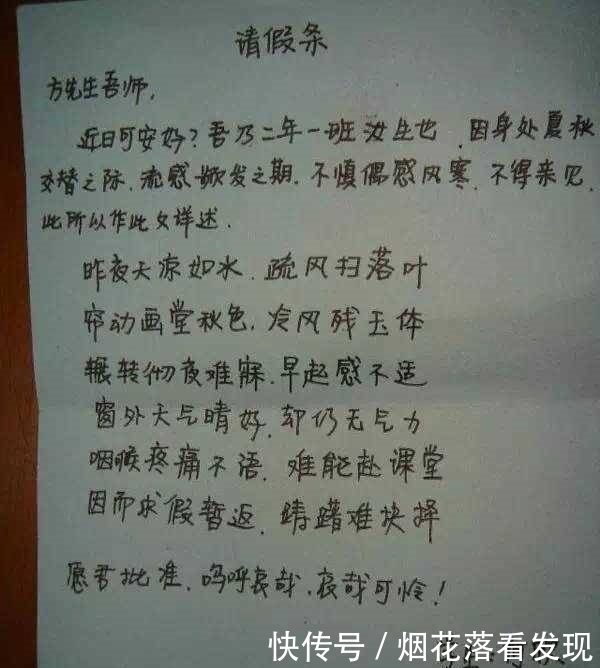 请假条
方先生吾师,
近日可安好?吾乃二年一班汝生也,因身处夏秋
交替之际,流感掀发之期,不慎偶感风寒,不得来见,
此所以作此文详述.
昨夜天凉如水,疏风扫落叶
帘动画堂秋色,冷风残玉体
辗转彻夜难寐,早起感不适
窗外天气晴好,却仍无气力
咽喉疼痛不语,难能赴课堂
因而求假暂返,踌躇难抉择
愿君批准,呜呼哀哉,哀哉可怜!
快传号/烟花落看发现